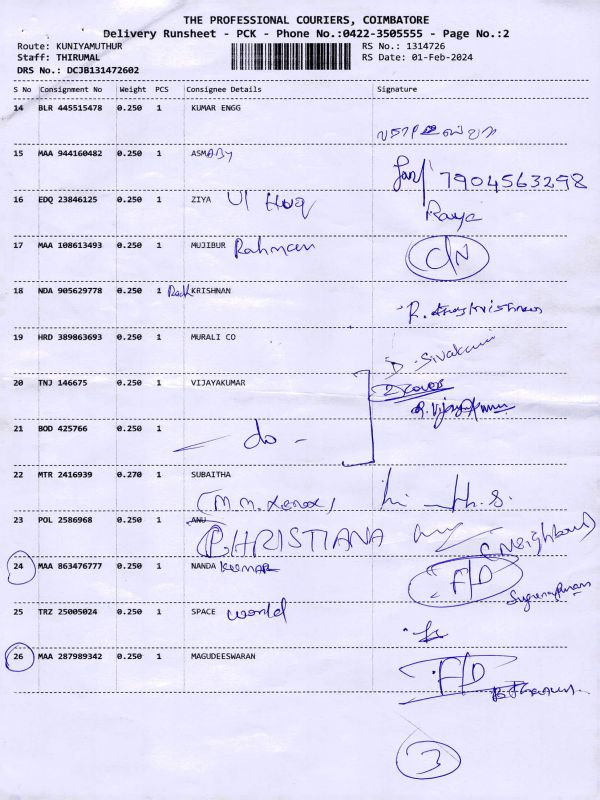 THE PROFESSIONAL COURIERS, COIMBATORE
Delivery Runsheet - PCK - Phone No.:0422-3505555 - Page No.:2
Route: KUNIYAMUTHUR RS No.: 1314726
Staff: THIRUMAL RS Date: 01-Feb-2024
DRS No.: DCJB131472602
S No Consignment No Weight PCS Consignee Details Signature
14 BLR 445515478 0.250 1 KUMAR ENGG
15 MAA 944160482 0.250 1 ASM
7904563298
16 EDQ 23846125 0.250 1 ZIYA Ul Huq
17 MAA 108613493 0.250 1 MUJIBUR Rahman
18 NDA 905629778 0.250 1 KRISHNAN
19 HRD 389863693 0.250 1 MURALI CO
D. Sivakami
20 TNJ 146675 0.250 1 VIJAYAKUMAR
2 covers
R. Vijayakumar
21 BOD 425766 0.250 1
do -
22 MTR 2416939 0.270 1 SUBAITHA
23 POL 2586968 0.250 1 ANU
CHRISTIANA
(Neighbour)
24 MAA 863476777 0.250 1 NANDA KUMAR F/D
25 TRZ 25005024 0.250 1 SPACE world
26 MAA 287989342 0.250 1 MAGUDEESWARAN F/D
3